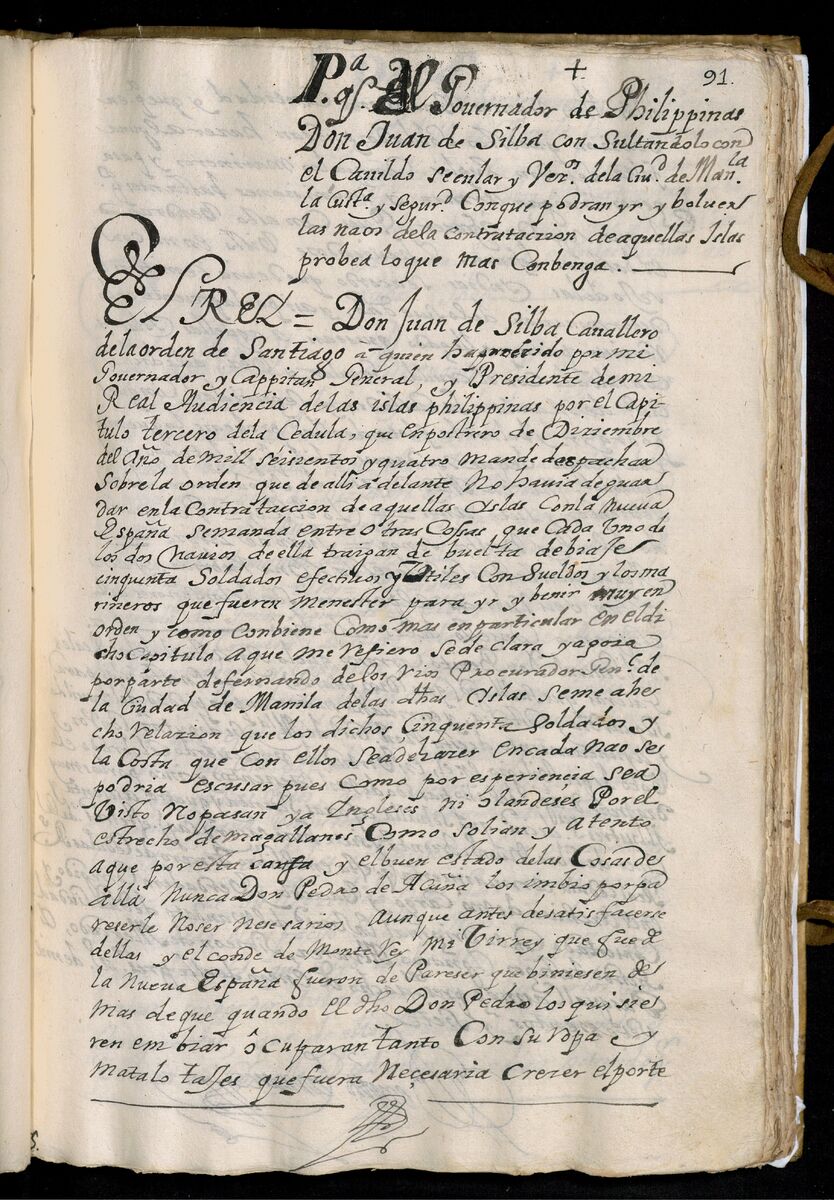 + 91.
P.ª q̃. El Gouernador de Philippinas
Don Juan de Silba con Sultandolo con
el Cauildo secular y Vez.ºˢ dela Ciu.ᵈ de Man.ˡᵃ
la Custª y segur.ᵈ Conque podran yr y boluer
las naos dela Contratazion deaquellas Islas
probea loque mas Conbenga.
EL REY = Don Juan de Silba Cauallero
dela orden de Santiago à quien he proueido por mi
Gouernador y Cappitan General, y Presidente demi
Real Audiencia delas islas philippinas por el Capi-
tulo tercero dela Cedula, que enpostrero de Diziembre
del Año de mill seisientos y quatro mande despachar
Sobrela orden que de alli adelante Se hauia deguar
dar enla Contrataccion deaquellas Islas Conla nueua
España semanda entre otras Cossas que Cada Uno de
los dos nauios de ella traigan de buelta de biaje
cinquenta Soldados efectiuos y Utiles Con Sueldos y losma
rineros que fueren menester para yr y benir muy en
orden y como conbiene Como mas en particular en el di
cho Capitulo aque me refiero sede clara y agora
porparte defernando delos rios Procurador Gen.ˡ de
la Ciudad de Manila delas dhas Islas seme ahe
cho relazion que los dichos Cinquenta Soldados y
la Costa que con ellos seadehazer encada nao se
podria escusar pues Como por esperiencia sea
Visto nopasan ya Ingleses ni olandeses Por el
estrecho demagallanes Como solian y atento
aque por esta causa y elbuen estado delas Cosas de
allà nunca Don Pedro de Acuña los imbio porpa
reserle noser nesesarios aunque antes desatisfacerse
dellas y el conde de Monte Rey mi Virrey que fue de
la nueua España fueron de Pareser que biniesen de
mas deque quando el dho Don Pedro los quisie
ren embiar ôcuparan tanto Con su ropa y
matalotajes quefuera neçesaria crezer elporte